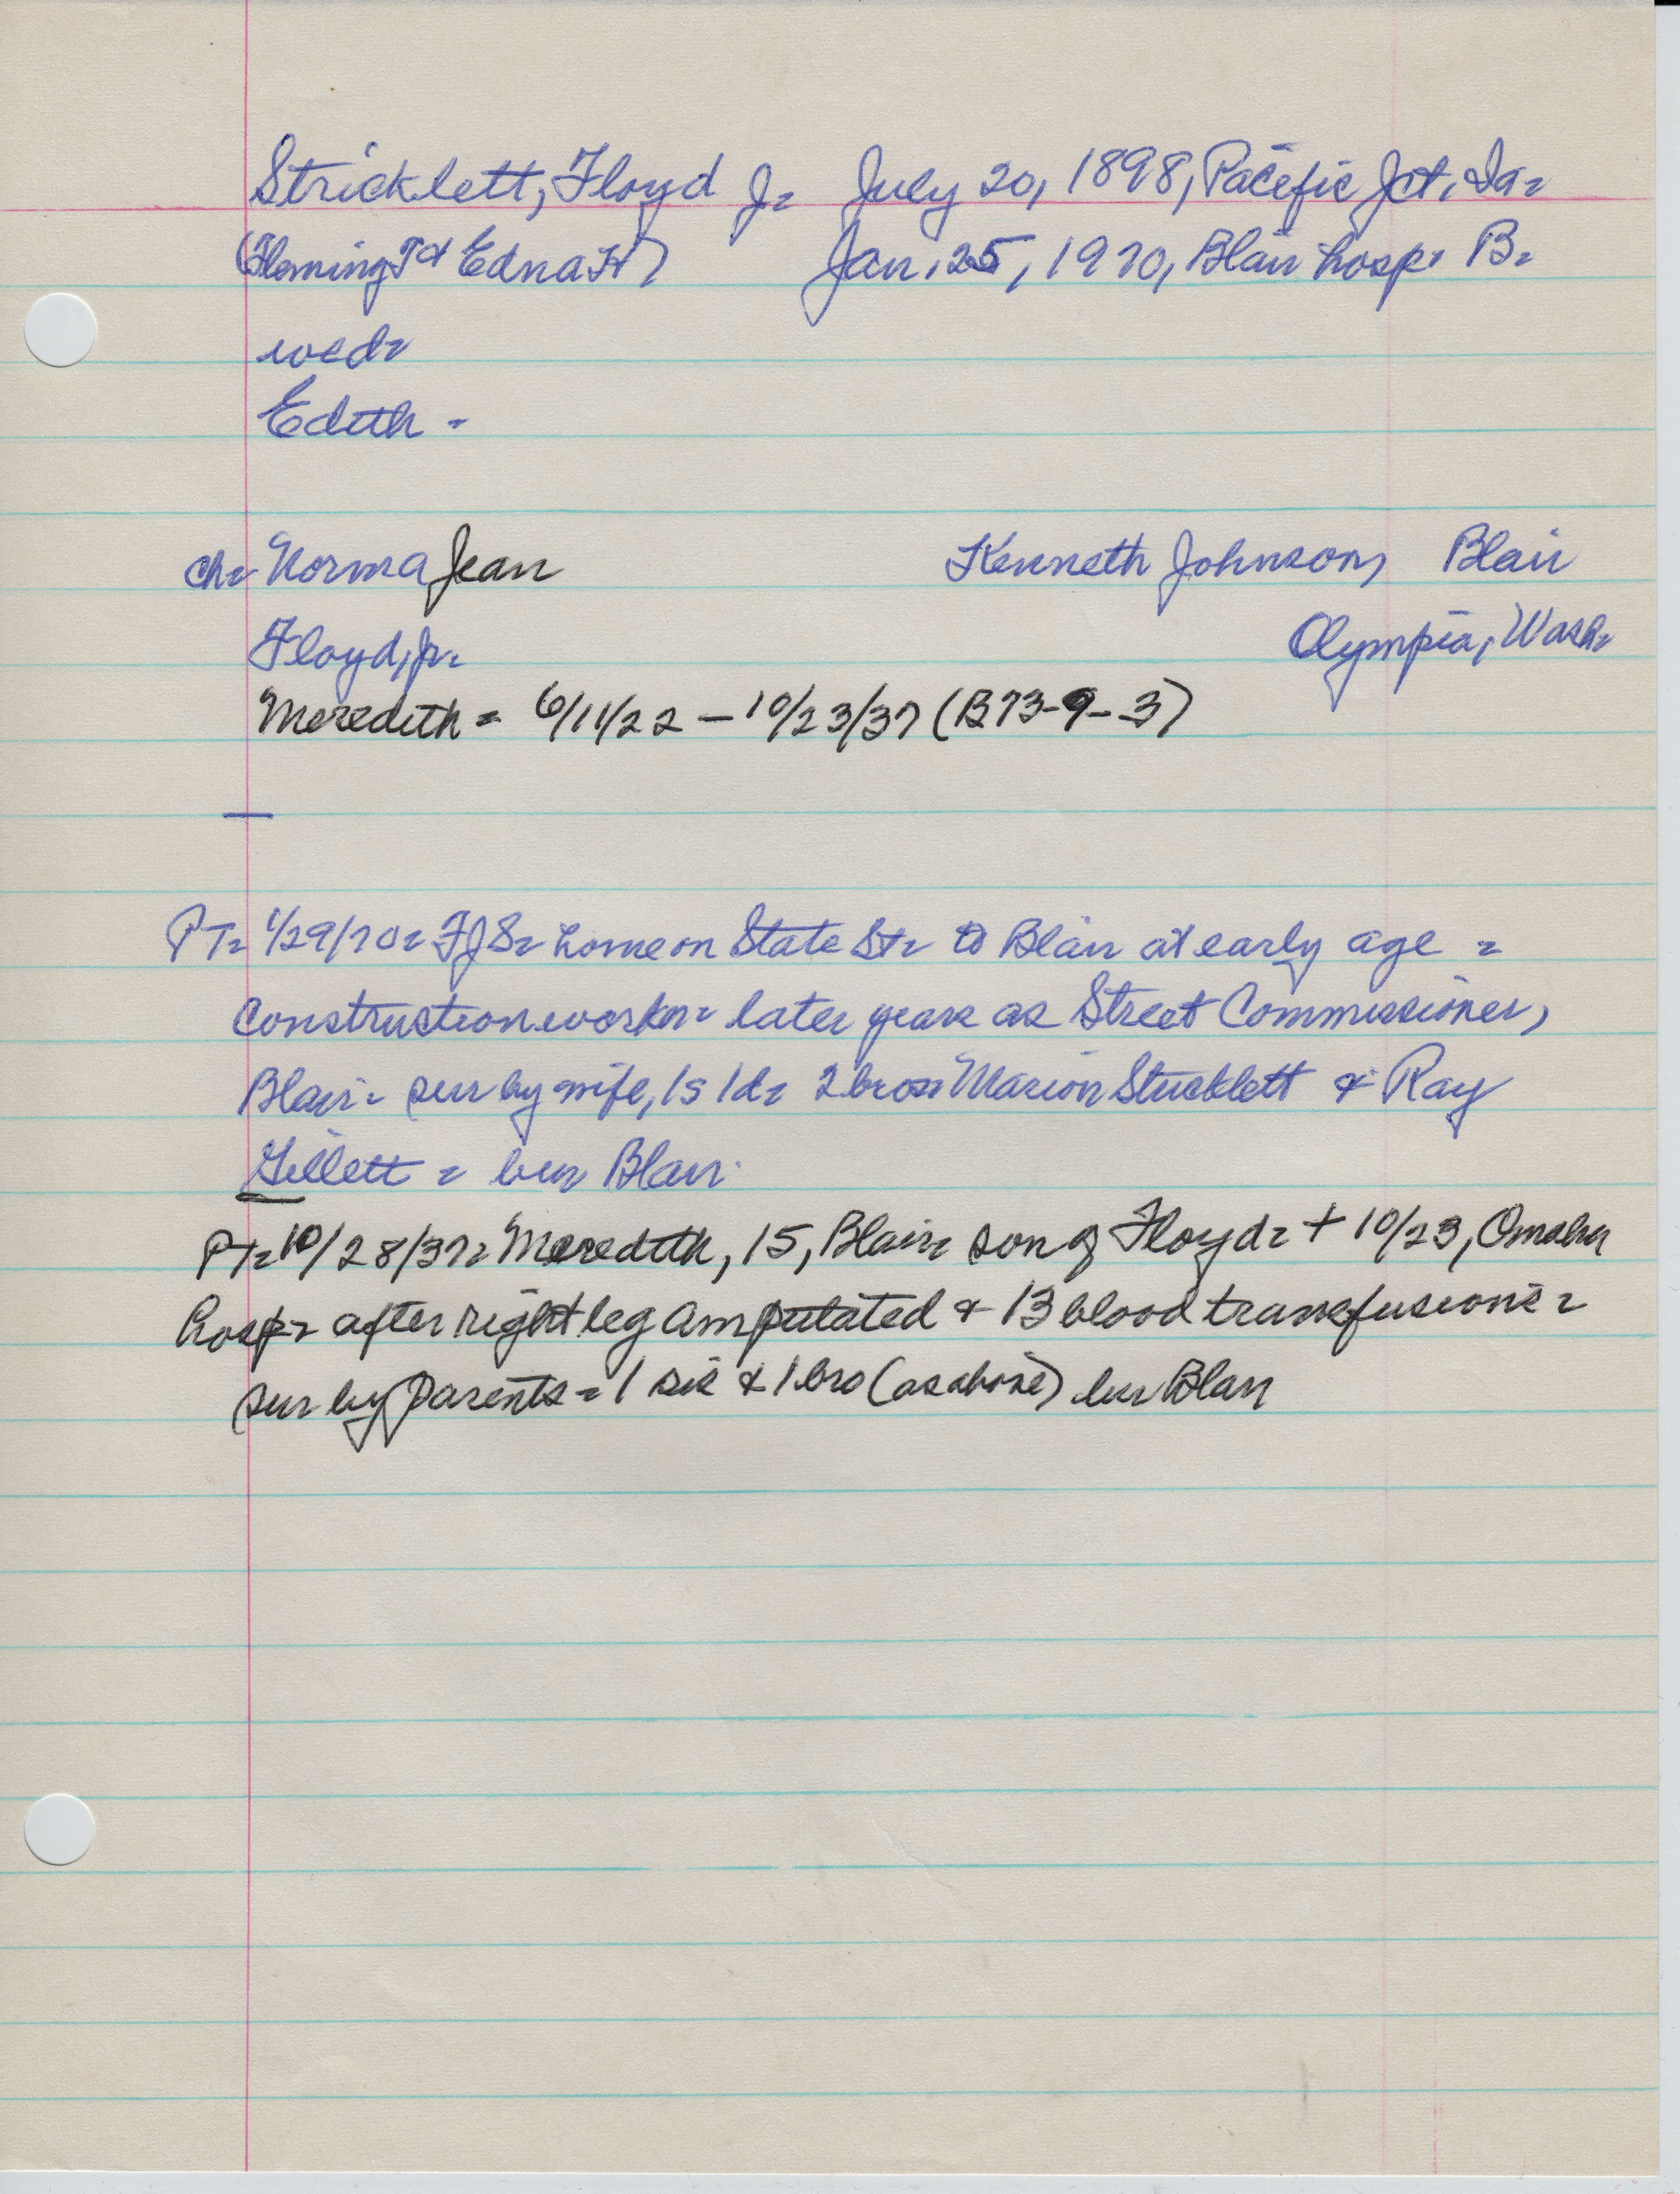 Stricklett, Floyd J= July 20, 1898, Pacific Jct, Ia=
(Fleming T & Edna H) Jan. 25, 1970, Blair hosp. B=
wed=
Edith -
ch= Norma Jean Kenneth Johnson, Blair
Floyd, Jr= Olympia, Wash=
Meredith = 6/11/22 – 10/23/37 (B73-9-3)
—
PT= 1/29/70= FJS= home on State St= to Blair at early age =
construction worker= later years as Street Commissioner,
Blair= sur by wife, 1s 1d= 2 bros= Marion Stricklett & Ray
Gillett = bur Blair.
PT= 10/28/37= Meredith, 15, Blair= son of Floyd= + 10/23, Omaha
hosp= after right leg amputated & 13 blood transfusions =
sur by parents = 1 sis & 1 bro (as above) bur Blair